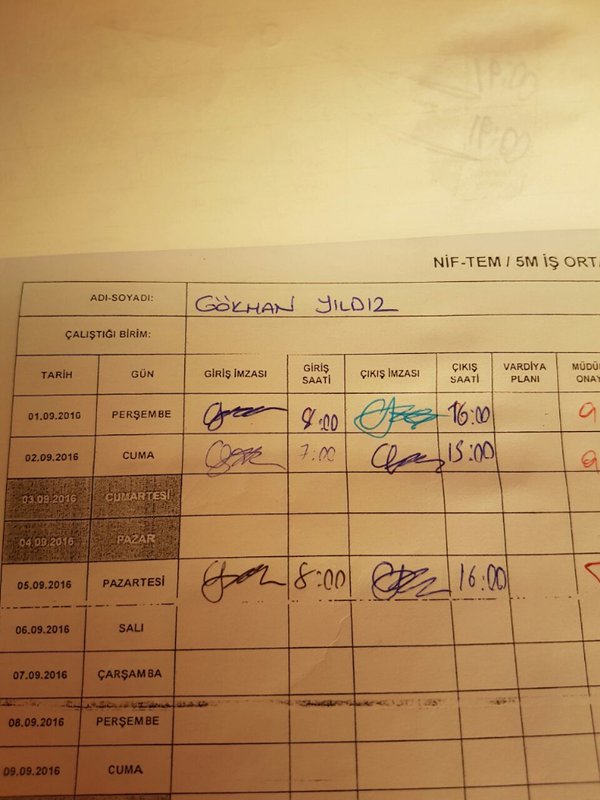 19:00
19:00
NİF-TEM / 5M İŞ ORTA
ADI-SOYADI: GÖKHAN YILDIZ
ÇALIŞTIĞI BİRİM:
TARİH GÜN GİRİŞ İMZASI GİRİŞ SAATİ ÇIKIŞ İMZASI ÇIKIŞ SAATİ VARDİYA PLANI MÜDÜR ONAY
01.09.2016 PERŞEMBE 8:00 16:00
02.09.2016 CUMA 7:00 15:00
03.09.2016 CUMARTESİ
04.09.2016 PAZAR
05.09.2016 PAZARTESİ 8:00 16:00
06.09.2016 SALI
07.09.2016 ÇARŞAMBA
08.09.2016 PERŞEMBE
09.09.2016 CUMA